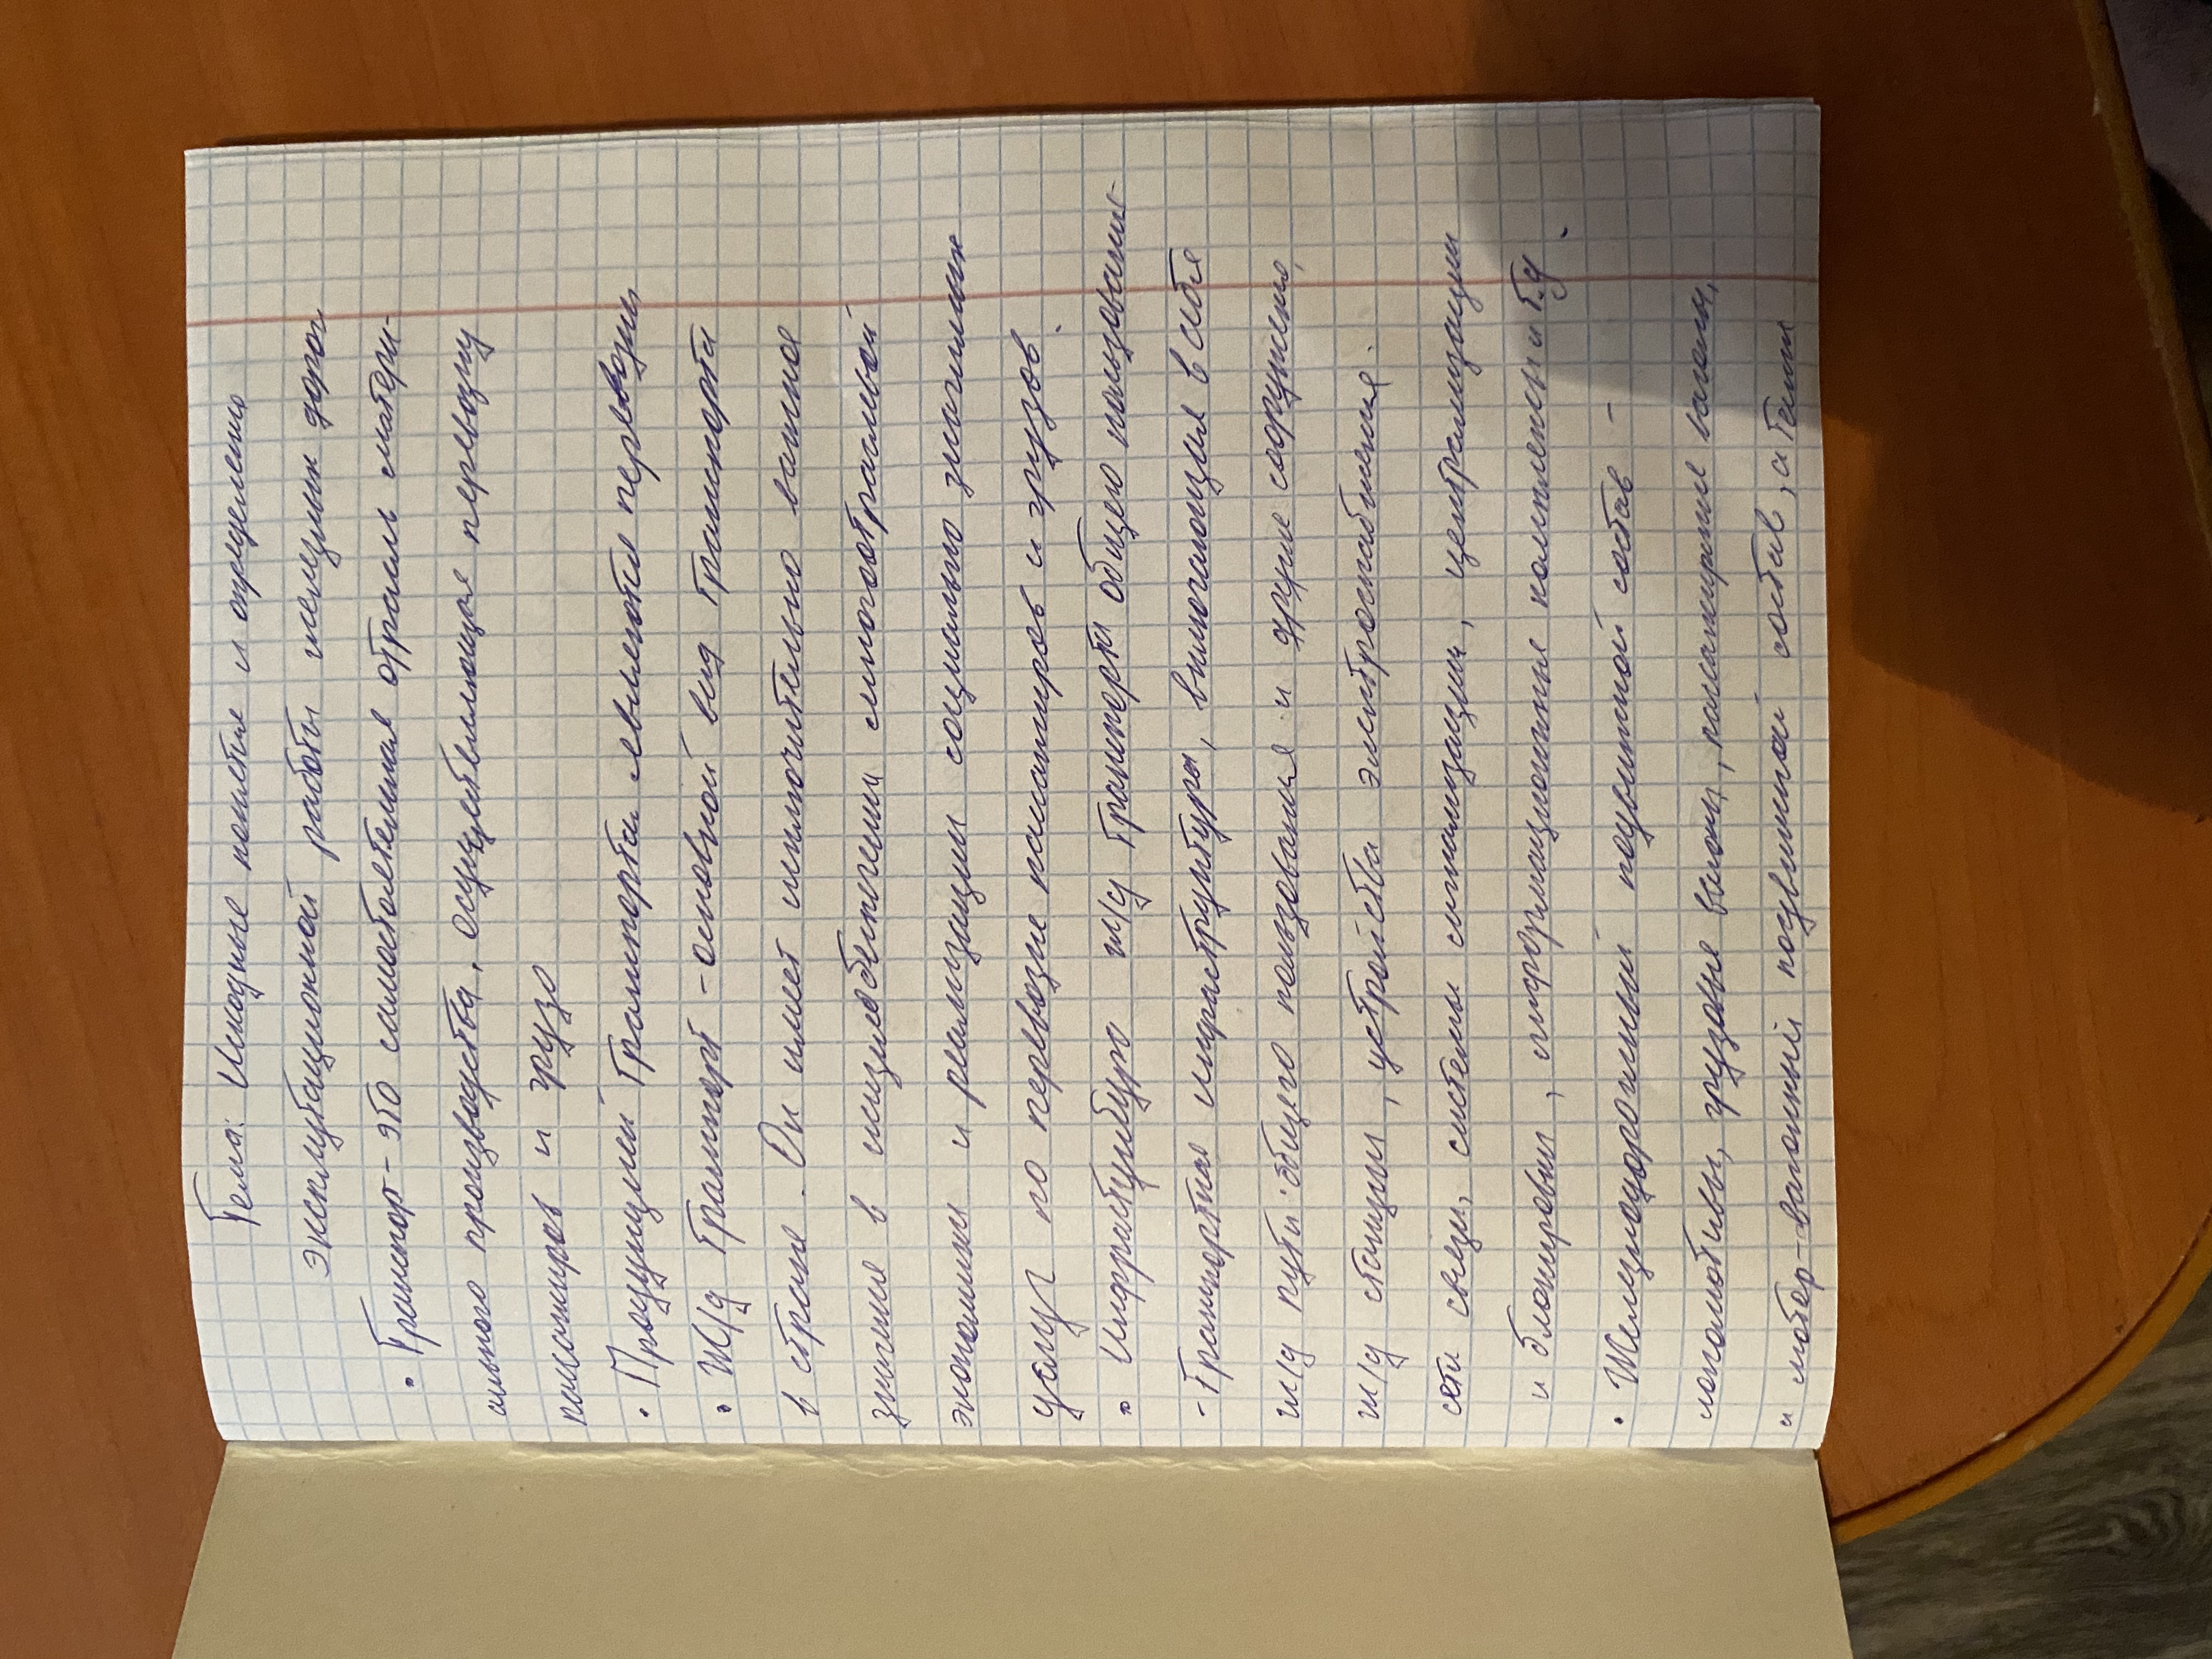 Тема: Исходные понятия и определено
эксклутационной работы железных дорог
• Транспорт- это самостоятельная отрасль матери-
ального производства, осуществляющая перевозку
пассажиров и грузо
• Продукцией транспорта являются перевозки
• Ж/д транспорт - основной вид транспорта
в стране. Он имеет исключительно важное
значение в жизнеобеспечении многоотраслевой
экономики и реализации социально значимых
услуг по перевозке пассажиров и грузов.
• Инфраструктура ж/д транспорта общего пользовании-
- транспортная инфраструктура, включающая в себя
ж/д пути общего пользования и другие сооружения,
ж/д станции, устройства электроснабжения.
сети связи, системы сигнализации, централизации
и блокировки, информационные комплексы и т.д.
• Железнодорожный подвижной состав -
локомотивы, грузовые вагоны, пассажирские вагоны,
и мотор-вагонный подвижной состав, а также